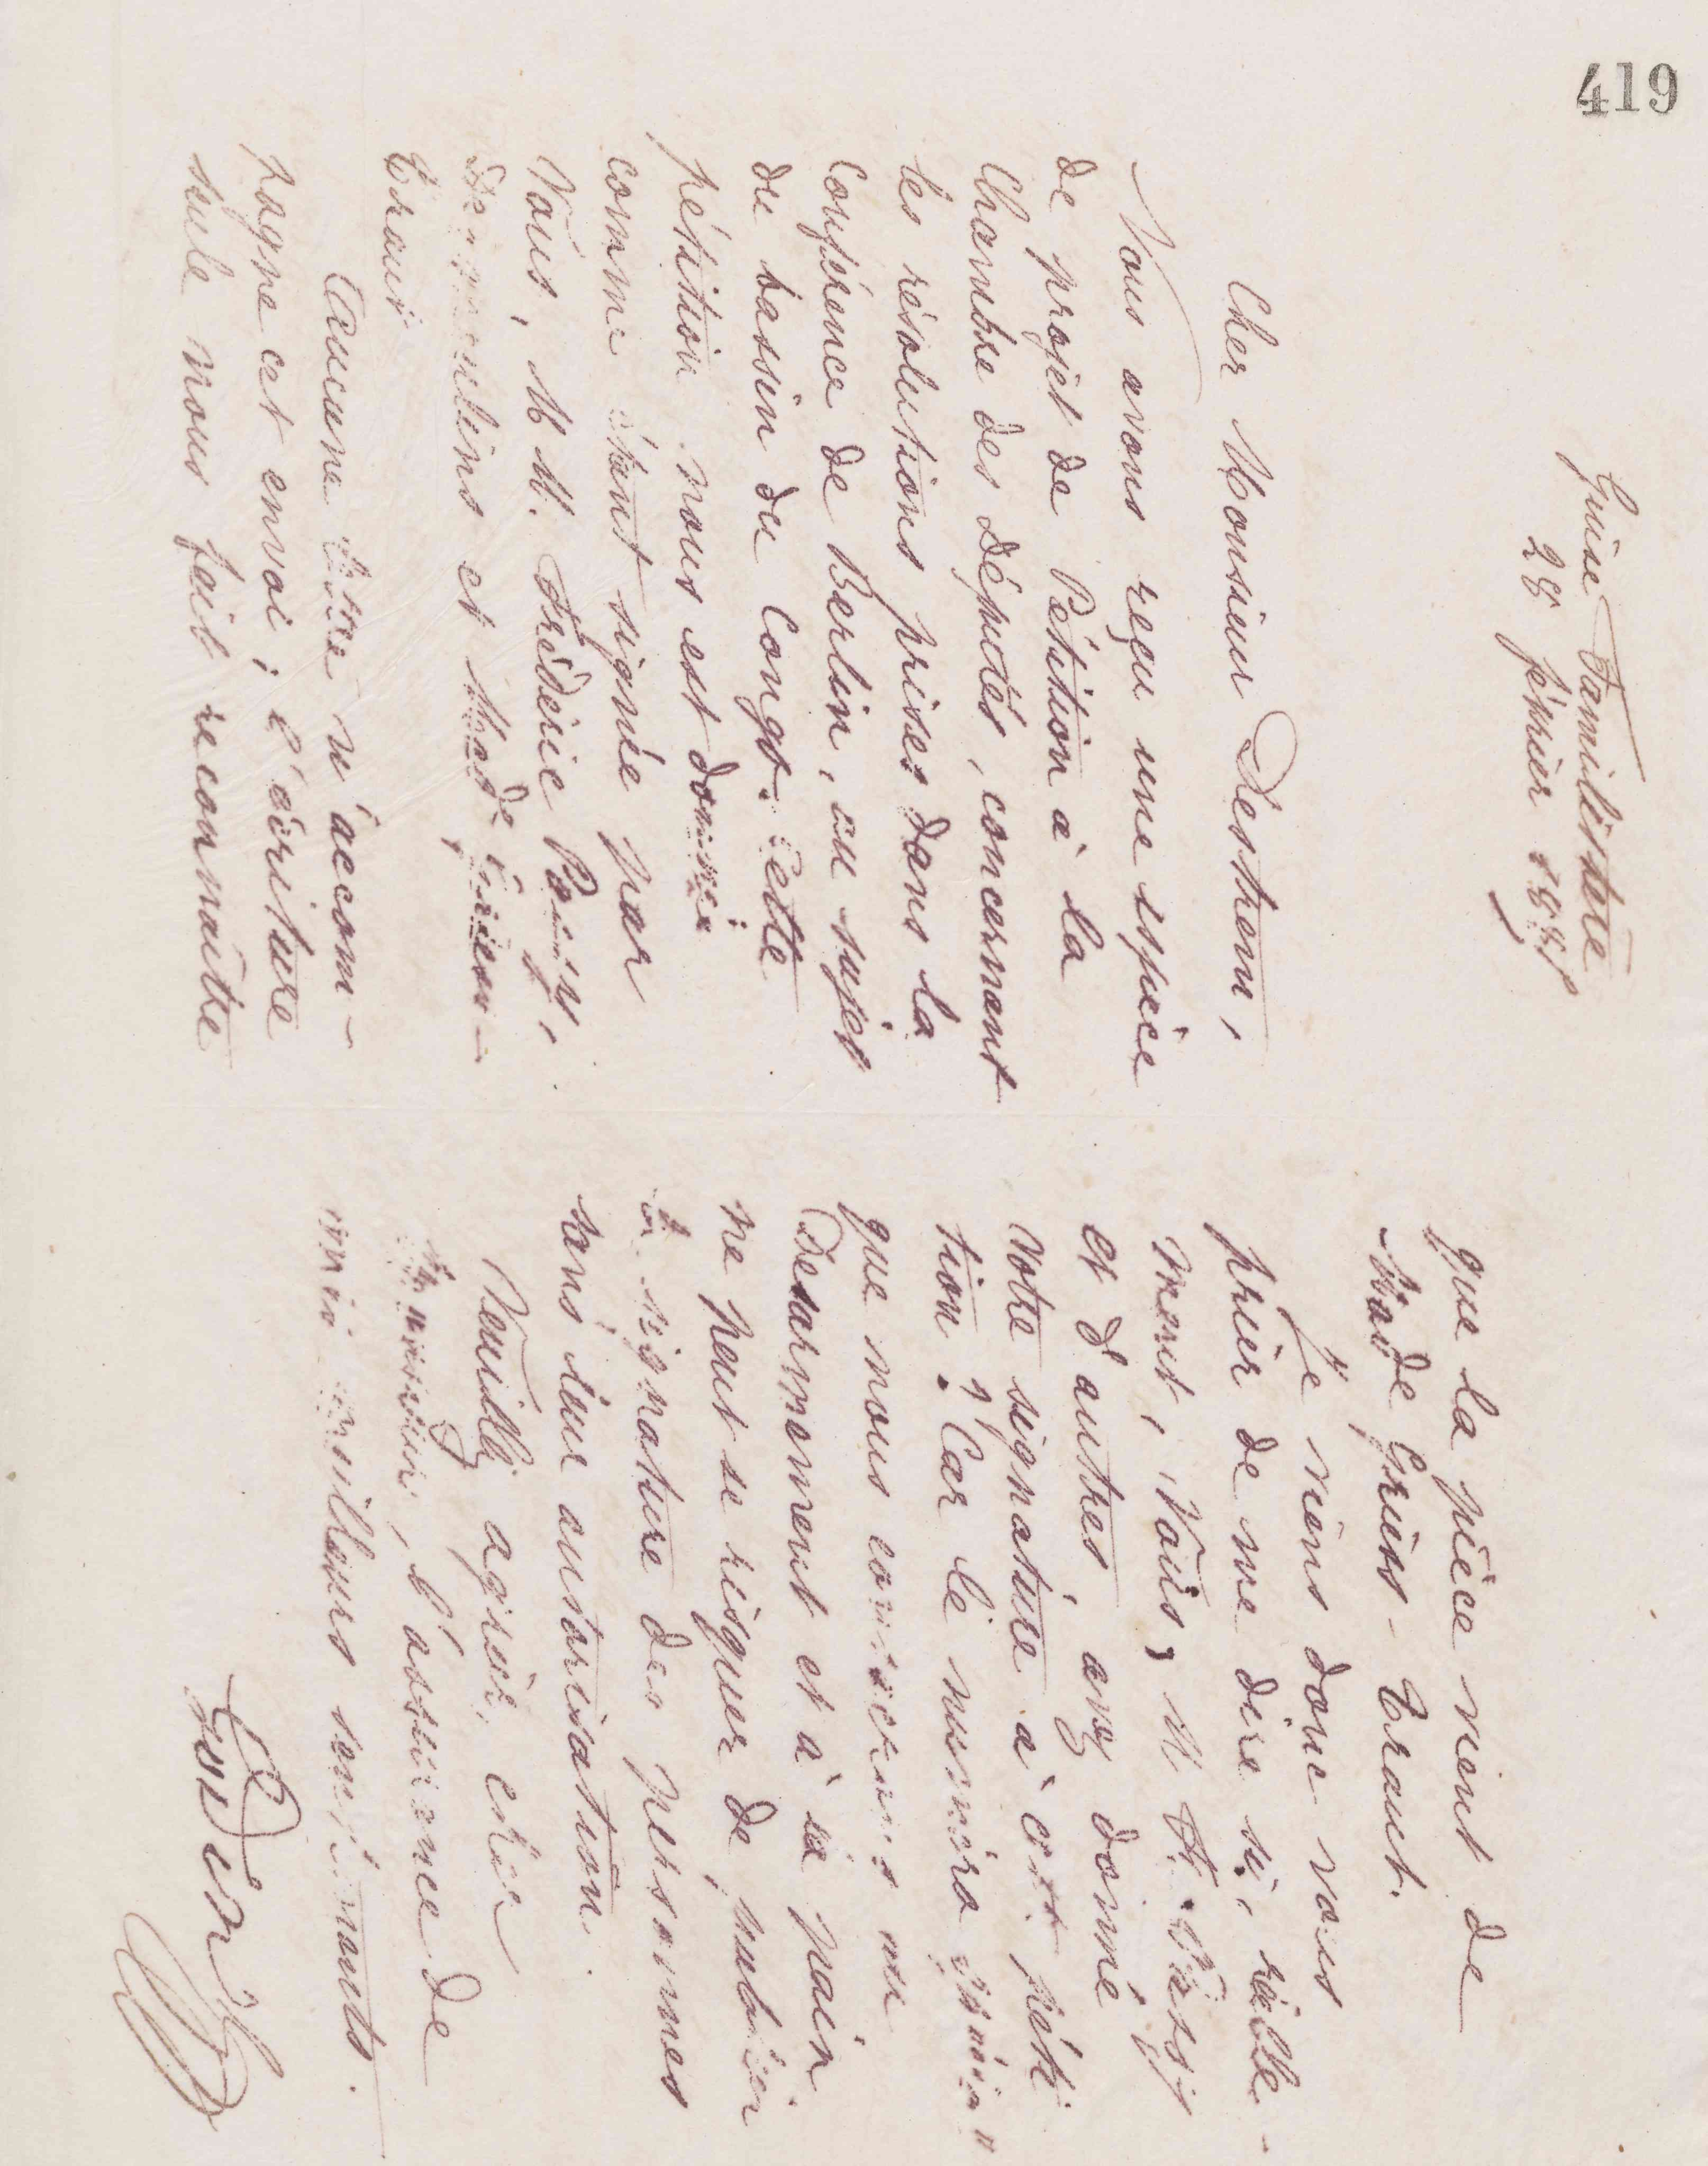 419
Guise Familistère
28 février 1885
Cher Monsieur Destrem,
Nous avons reçu une espèce
de projet de Pétition à la
Chambre des Députés, concernant
les résolutions prises dans la
Conférence de Berlin, au sujet
du bassin du Congo. Cette
pétition nous est donnée
comme étant signée par
Vous, M M. Frédéric Passy,
et Made Griess-
Traut
Aucune lettre n'accom-
pagne cet envoi ; l'écriture
seule nous fait reconnaître
que la pièce vient de
Made Griess-Traut.
Je viens donc vous
prier de me dire si, réelle-
ment, Vous, M F. Passy
et d'autres, avez donné
votre signature à cette péti
tion ? Car le numéro spécial
que nous consacrons au
Désarmement et à la paix
ne peut se risquer de publier
la signature des personnes
sans leur autorisation.
Veuillez agréer, cher
Monsieur, l'assurance de
mes meilleurs sentiments.
Godin